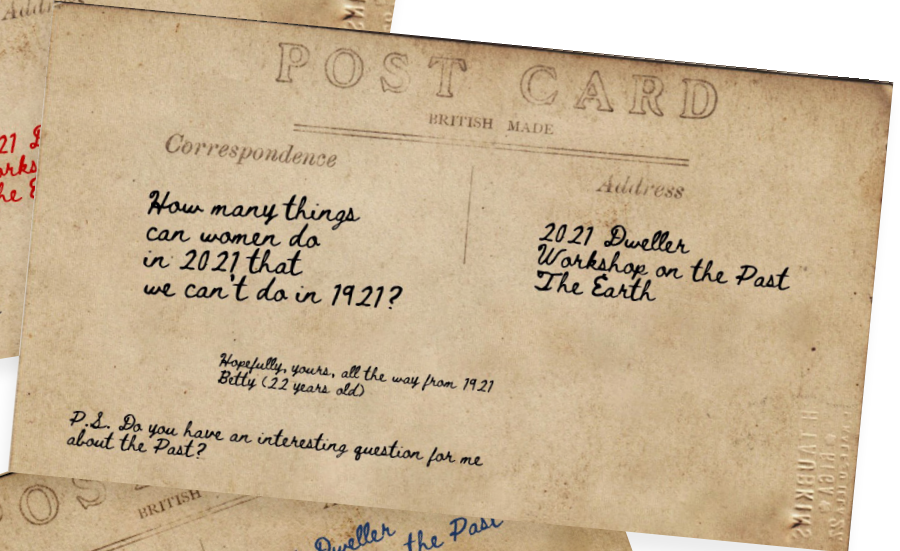 Addre
POST CARD
BRITISH MADE
Correspondence
Address
How many things
can women do
in 2021 that
we can't do in 1921?
2021 Dweller
Workshop on the Past
The Earth
Hopefully, yours, all the way from 1921
Betty (22 years old)
P.S. Do you have an interesting question for me
about the Past?
21 D
orks
he E
OS
BRITISH
Dweller
the Past